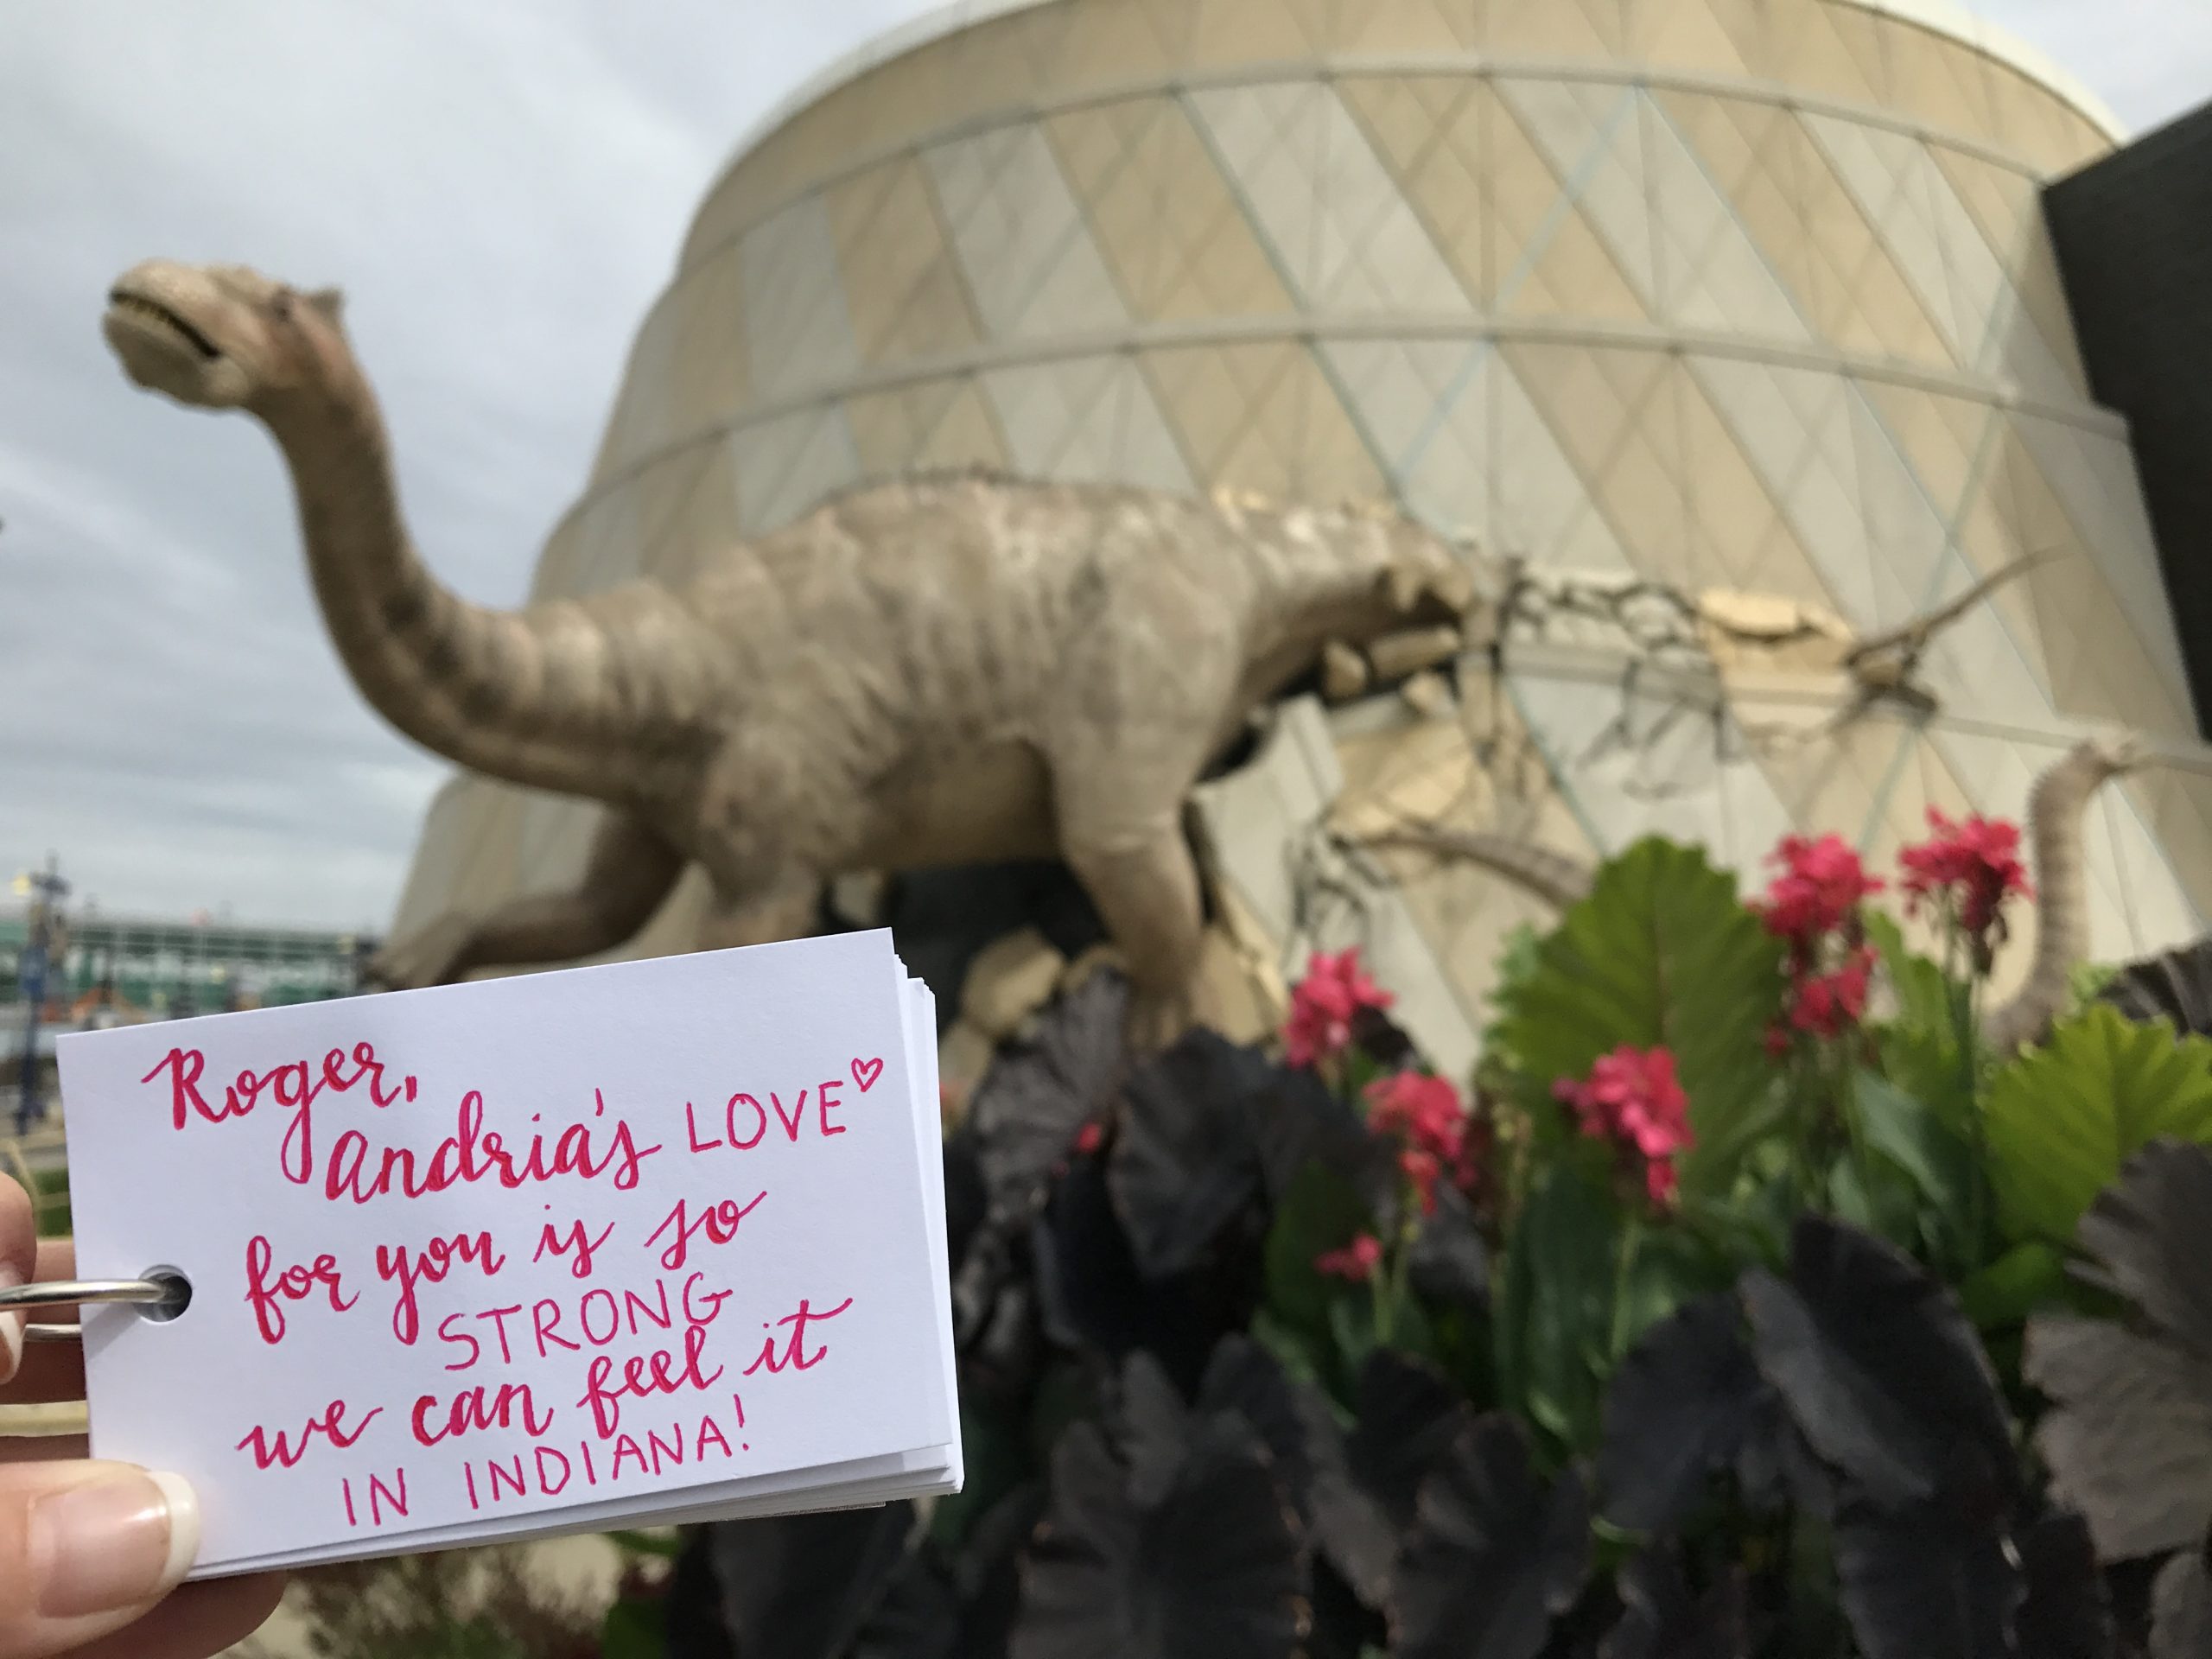 Roger,
Andria's LOVE♡
for you is so
STRONG
we can feel it
IN INDIANA!